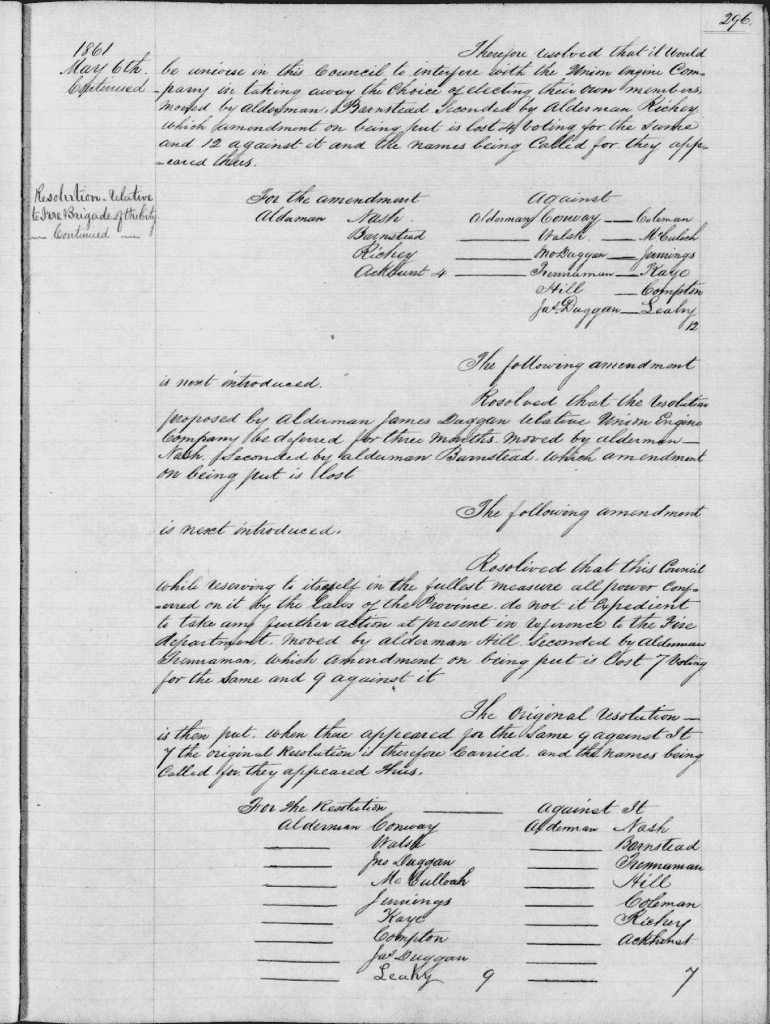 296.
1861
May 6th.
Continued
Therefore resolved that it Would
be unwise in this Council to interfere with the Union Engine Com-
-pany in taking away the Choice of electing their own members,
moved by alderman, Barnstead Seconded by Alderman Richey
which amendment on being put is lost 4 Voting for the same
and 12 against it and the names being Called for they app-
-eared thus.
Resolution relative
to Fire Brigade of the City
Continued
For the amendment Against
Alderman Nash. Alderman Conway — Coleman
Barnstead — Walsh — McCuloch
Richey — Jno Duggan — Jennings
Ackhurst 4 — Trennaman — Kaye
Hill — Compton
Jas. Duggan — Leahy
12
The following amendment
is next introduced.
Resolved that the resolution
proposed by Alderman James Duggan relative Union Engine
Company be deferred for three months. moved by alderman —
Nash. Seconded by alderman Barnstead. which amendment
on being put is lost
The following amendment
is next introduced.
Resolived that this Council
while reserving to itself in the fullest measure all power conf-
-erred on it by the Laws of the Province. do not it Expedient
to take any further action at present in reference to the Fire
department. Moved by alderman Hill. Seconded by Alderman
Trennaman. which amendment on being put is Lost 7 Voting
for the same and 9 against it
The Original resolution —
is then put. when there appeared for the same 9 against It
7 the original Resolution is therefore Carried. and the names being
Called for they appeared thus.
For the Resolution — against It
Alderman Conway Alderman Nash
— Walsh — Barnstead
— Jno Duggan — Trennaman
— McCulloch — Hill
— Jennings — Coleman
— Kaye — Richey
— Compton — Ackhurst.
— Jas. Duggan —
— Leahy 9 — 7